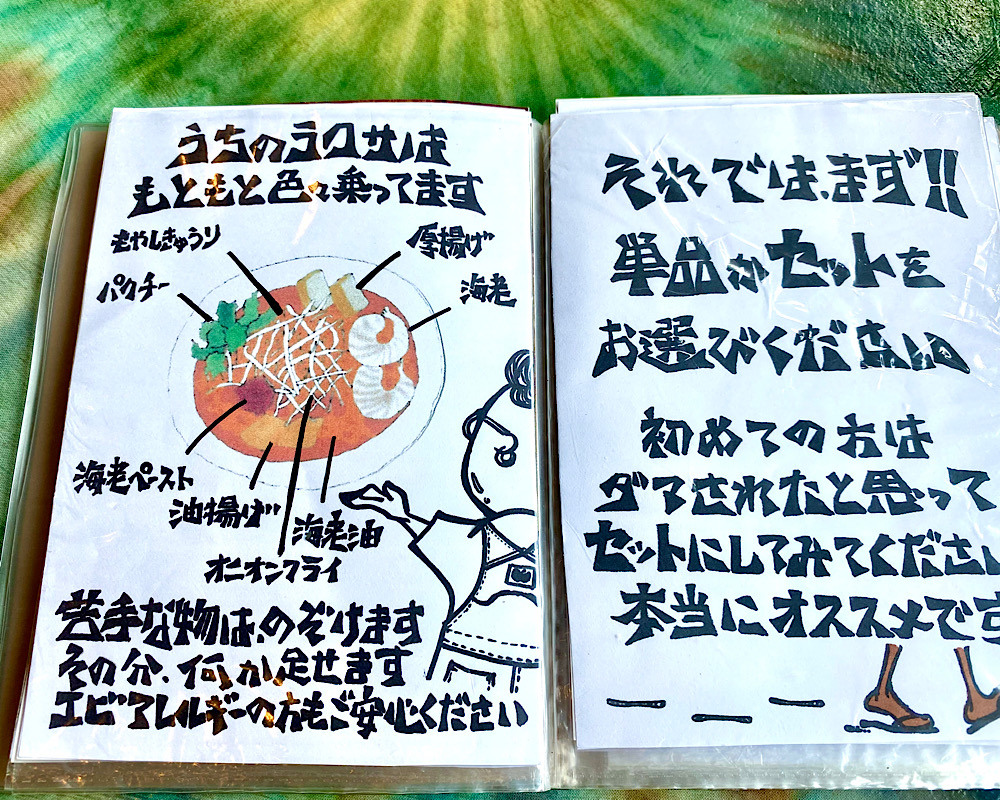 うちのラクサは
もともと色々乗ってます
もやしきゅうり
厚揚げ
パクチー
海老
海老ペースト
油揚げ
海老油
オニオンフライ
苦手な物は、のぞけます
その分、何か足せます
エビアレルギーの方もご安心ください
それでは、まず!!
単品かセットを
お選びください
初めての方は
ダマされたと思って
セットにしてみてください
本当にオススメです